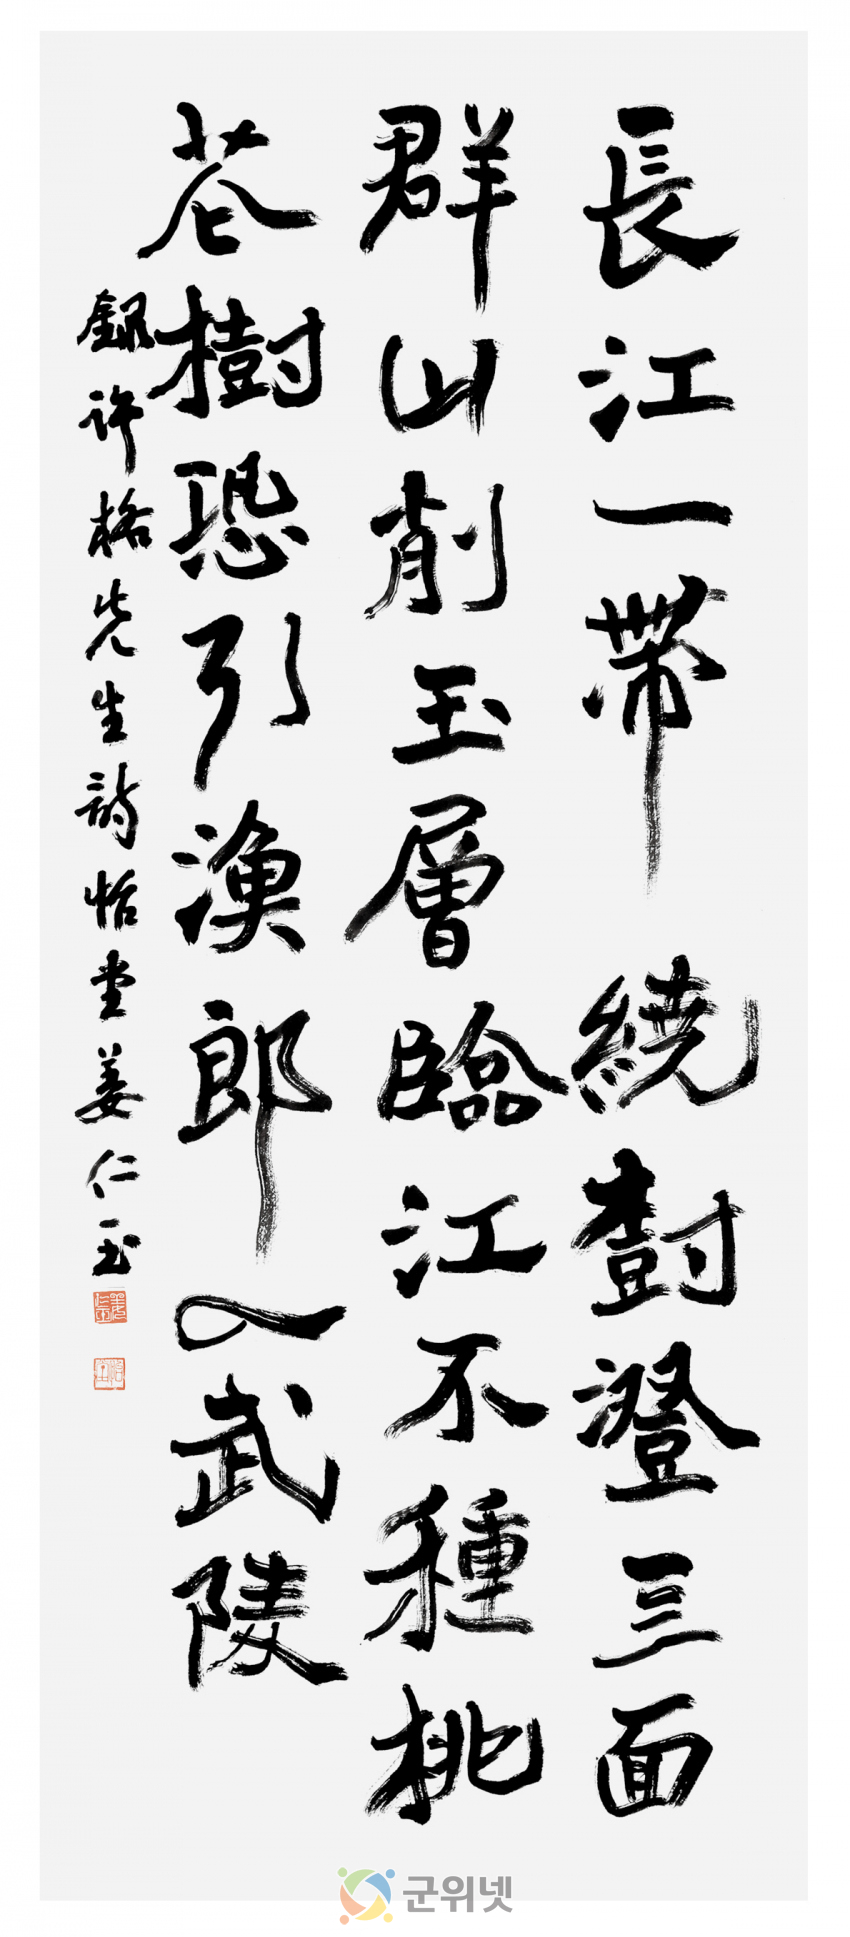 長江一帶繞樹澄三面
群山削玉層臨江不種桃
花樹恐引漁郎入武陵
錄許格先生詩恬堂姜仁玉
군위넷